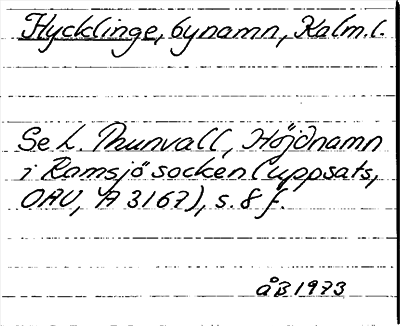 Hycklinge, bynamn, Kalm.l.
Se L. Thunvall, Höjdnamn
i Ramsjö socken (uppsats,
OAU, A 3167), s. 8 f.
ÅB 1973